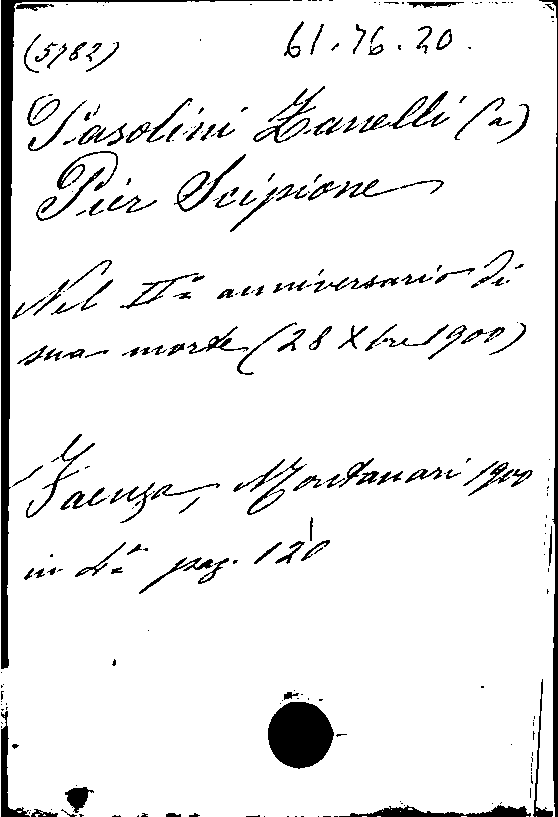 (5782) 61.76.20.
Pasolini Zanelli (a)
Pier Scipione
Nel IIº anniversario di
sua morte (28 Xbre 1900)
Faenza, Montanari 1900
in 4º pag. 120